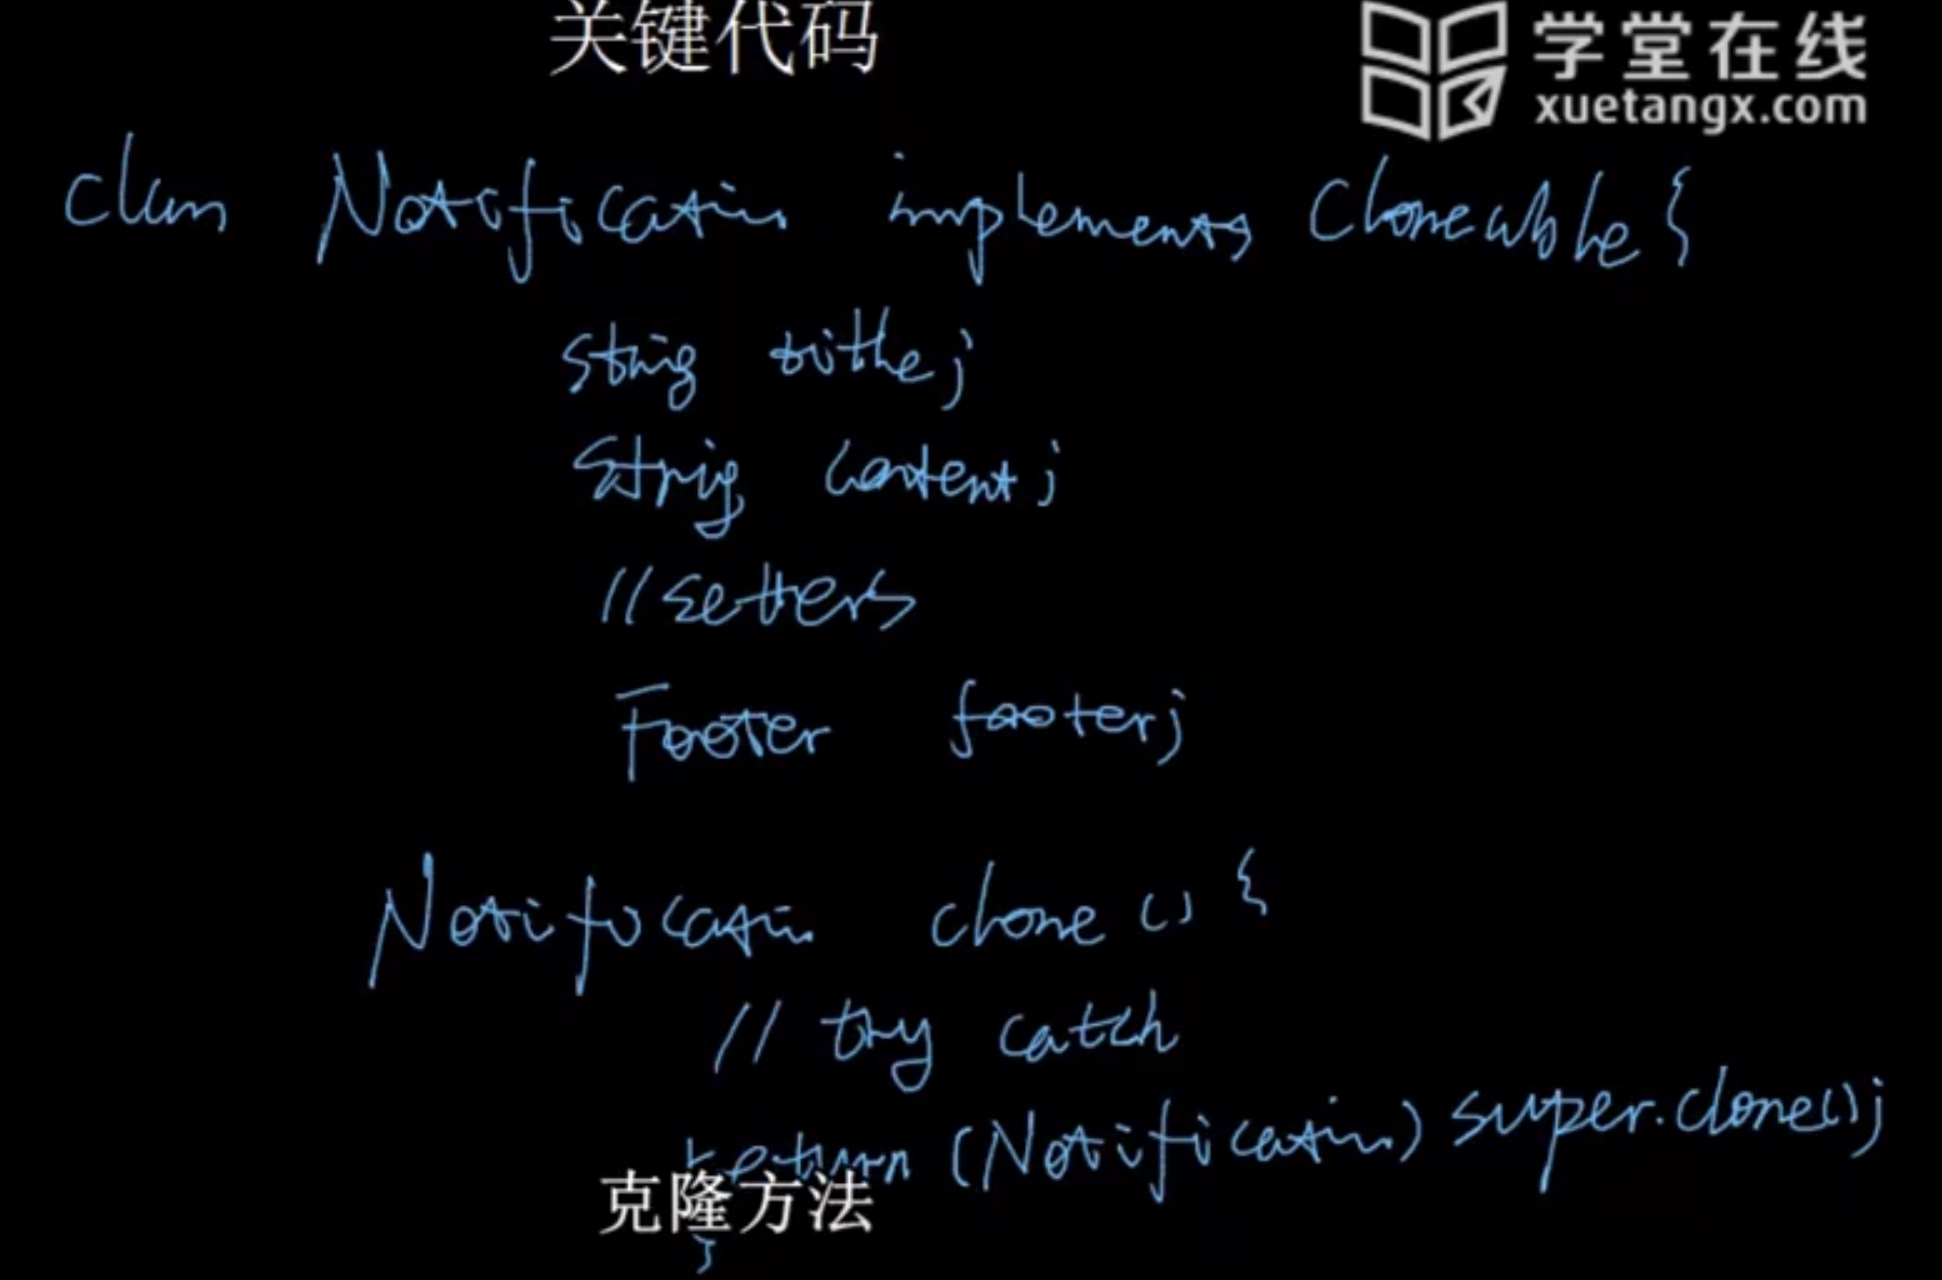 关键代码
学堂在线
xuetangx.com
class Notification implements Cloneable {
String title;
String content;
//setters
Footer footer;
Notification clone() {
// try catch
return (Notification) super.clone();
克隆方法
}